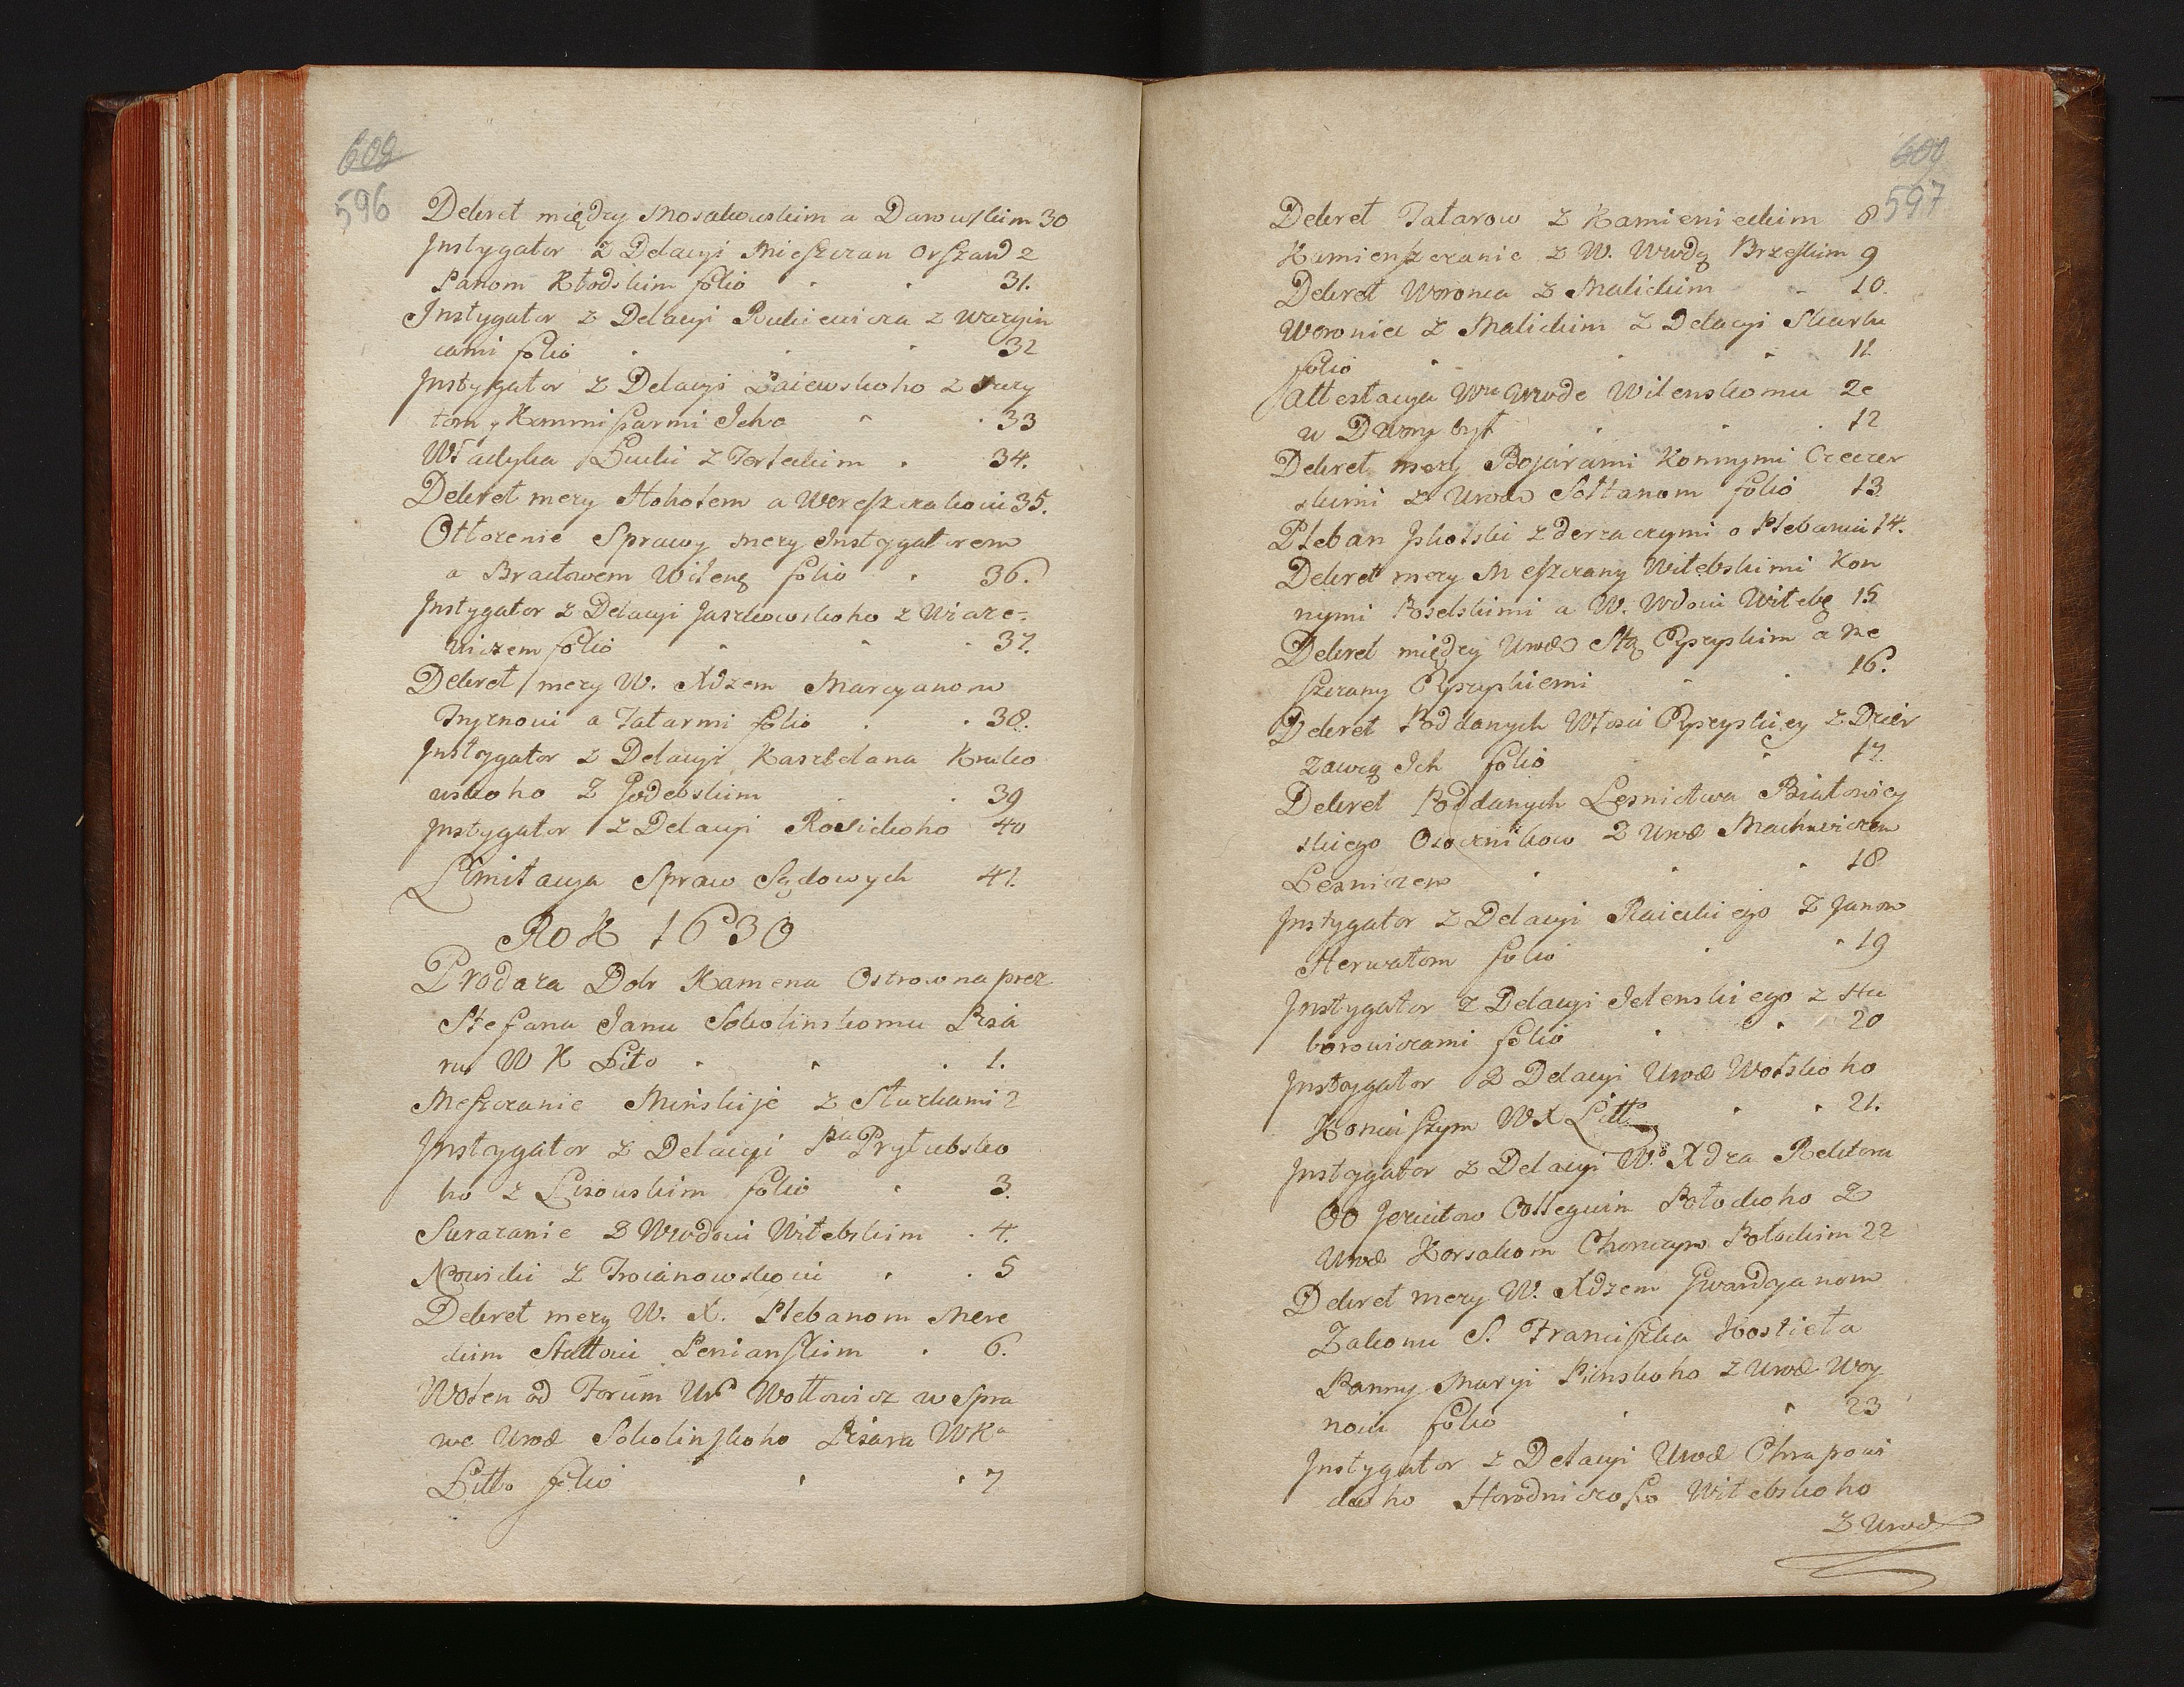 608
596
Dekret między Mosakowskim a Darowskim 30
Instygator z Delacyi Mieszczan Orszan z
Panom Kłodskim folio 31.
Instygator z Delacyi Rukiewicza z
cami folio 32
Instygator z Delacyi Zaiewskoho z
tom y Kommisarmi Jeho 33
Władyka Łucki z Terleckim 34.
Dekret mezy Hoholem a Wereszczakoiu 35.
Otłozenie Sprawy mezy Instygatorem
a Bractwem Wileng folio 36.
Instygator z Delacyi Jaszkowskoho z Wiaze-
wiczem folio 37.
Dekret mezy W. Xdzem Marcyanom
Tryznoiu a Tatarmi folio 38.
Instygator z Delacyi Kasztelana Krako
wskoho z Godebskim 39
Instygator z Delacyi Rosickoho 40
Limitacya Spraw Sądowych 41.
Rok 1630
Prodaza Dobr Kamena Ostrowna prez
Stefana Janu Sokolinskomu Pisa
ru W X Lito 1.
Meszczanie Minskije z Sluzkami 2
Instygator z Delacyi Pa Prytubsko
ho z Lisowskim folio 3.
Surazanie z Wwodoiu Witebskim 4.
Nowicki z Troianowskoiu 5
Dekret mezy W. X. Plebanom Mere
ckim Penianskim 6.
Wolen od Forum Ur. Wołłowicz w Spra
we Urod Sokolinskoho Pisara WXa
Litto folio 7
609
597
Dekret Tatarow z Kamienieckim 8
Kamienszczanie z W. Wwodą Brzeskim 9
Dekret Woronca z Malickim 10.
Woronicz z Malickim z Delacyi Skarbu
folio 11.
Attestacya Wu Wwode Wilenskomu ze
u Dwory był 12
Dekret mezy Bojarami Konnymi Czeczer
skimi z Urod Sołtanom folio 13
Pleban Iskolski z derzaczymi o Plebaniu 14.
Dekret mezy Meszczany Witebskimi Kon
nymi Poselskimi a W. Wdoiu Witebg 15
Dekret między Urod Stą Rzeczyskim a Me
szczany Rzeczyskiemi 16.
Dekret Poddanych Włosci Rzeczyskiey z Dzier
zawcą Ich folio 17.
Dekret Poddanych Lesnictwa Białowiey
skiego Osocznikow z Urod Machwiczem
Lesniczem 18
Instygator z Delacyi Raieckiego z Janom
Herwatom folio 19
Instygator z Delacyi Jelenskiego z Hu
borowiczami folio 20
Instygator z Delacyi Urod Wolskoho
Koniuszym WX Litt. 21.
Instygator z Delacyi W. Xdza Rektora
OO Jezuitow Collegium Połockoho z
Urod Korsakom Chorazym Połockim 22
Dekret mezy W. Xdzem Gwardyanom
Zakonu S. Franciszka Kostieła
Panny Maryi Pinskoho z Urod Woy
noiu folio 23
Instygator z Delacyi Urod Chrapowi
ckoho Horodniczoho Witebskoho
z Urod